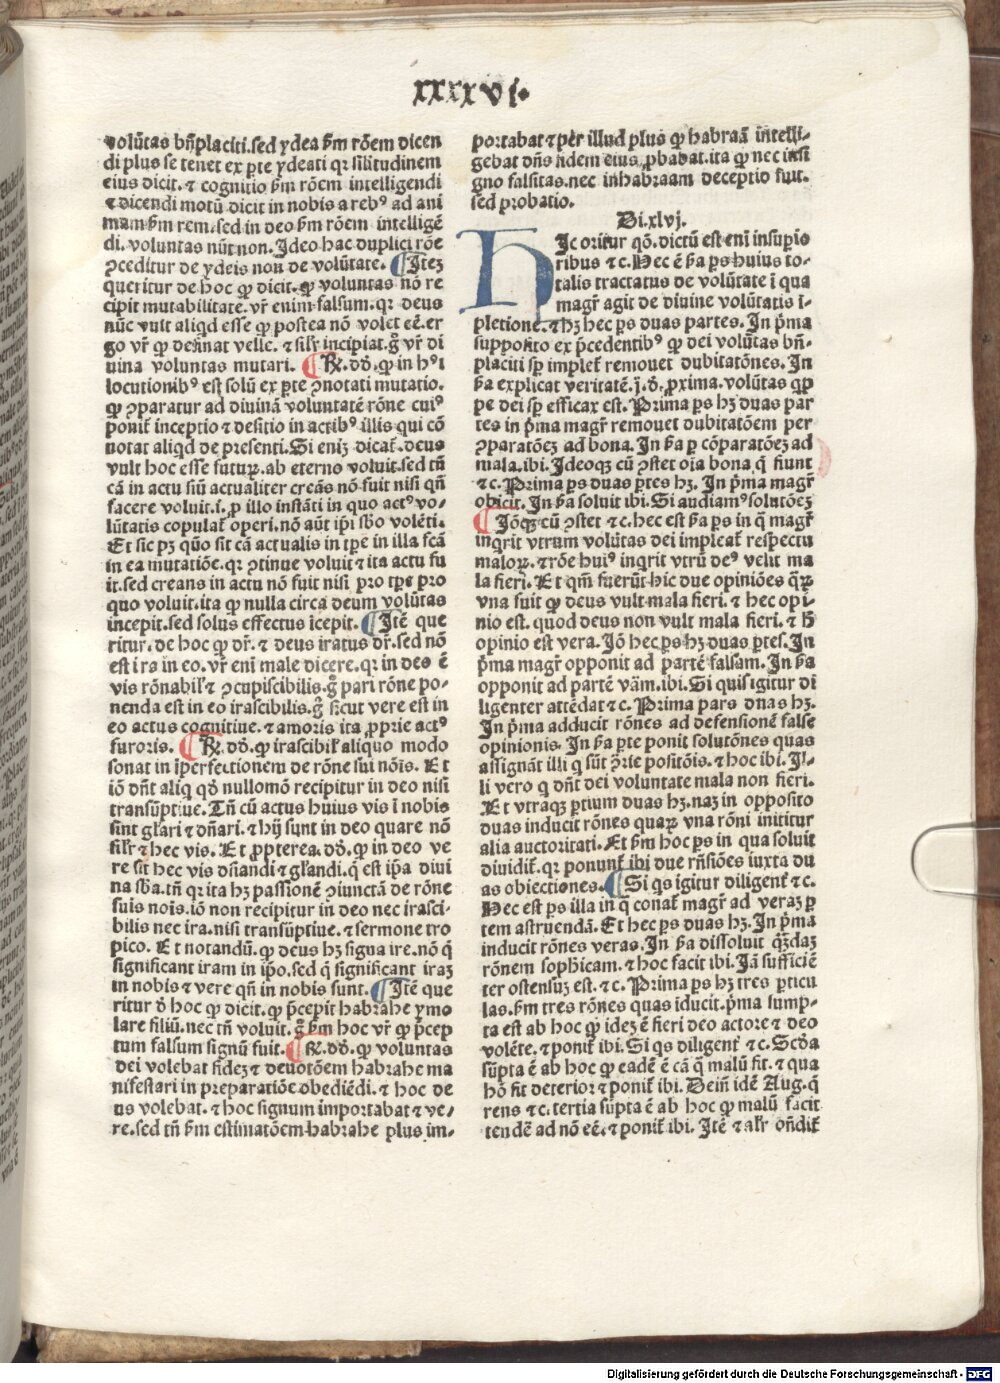 xxxxvi.
volūtas bn̄placiti.sed ydea ẜm rōem dicen
di plus se tenet ex ꝑte ydeati qꝛ silitudinem
eius dicit.⁊ cognitio ẜm rōem intelligendi
⁊ dicendi motū dicit in nobis a rebꝰ ad ani
mam.ẜm rem.sed in deo ẜm rōem intelligē
di.voluntas nūt non.Ideo hac duplici rōe
ꝓceditur de ydeis non de volūtate. ¶Itez
queritur de hoc ꝙ dicit.ꝙ voluntas nō re
cipit mutabilitatē.vr̄ enim falsum.qꝛ deus
nūc vult aliqd esse ꝙ postea nō volet eē.er
go vr̄ ꝙ desinat velle.⁊ silr̄ incipiat.g̊ vr̄ di
uina voluntas mutari. ¶℞.dō.ꝙ in hꝰi
locutionibꝰ est solū ex ꝑte ꝯnotati mutatio.
ꝙ ꝯparatur ad diuinā voluntatē rōne cuiꝰ
ponit̄ inceptio ⁊ desitio in actibꝰ illis qui cō
notat aliqd de presenti.Si eniz dicat̄.deus
vult hoc esse futuꝝ.ab eterno voluit.sed tn̄
cā in actu siū actualiter creās nō fuit nisi qn̄
facere voluit.i.ꝑ illo instāti in quo actꝰ vo/
lūtatis copulat̄ operi.nō aūt ip̄i sb̄o volēti.
Et sic pꝫ quō sit cā actualis in tꝑe in illa scā
in ea mutatiōe.qꝛ ꝯtinue voluit ⁊ ita actu fu
it.sed creans in actu nō fuit nisi pro tꝑe pro
quo voluit.ita ꝙ nulla circa deum volūtas
incepit.sed solus effectus īcepit. ¶Itē que
ritur.de hoc ꝙ dr̄.⁊ deus iratus dr̄.sed nō
est ira in eo.vr̄ eni male dicere.qꝛ in deo ē
vis rōnabil̄ ⁊ ꝯcupiscibilis.g̊ pari rōne po-
nenda est in eo irascibilis.g̊ sicut vere est in
eo actus cognitiue.⁊ amoris ita ꝓprie actꝰ
furoris. ¶℞.dō.ꝙ irascibil̄ aliquo modo
sonat in īperfectionem de rōne sui nōis. Et
iō dn̄t aliq qd̄ nullomō recipitur in deo nisi
transūptiue.Tn̄ cū actus huius vis ī nobis
sint gl̄ari ⁊ dn̄ari.⁊ hij sunt in deo quare nō
silr̄ ⁊ hec vis. Et ꝓpterea.dō.ꝙ in deo ve
re sit hec vis dn̄andi ⁊ gl̄andi.q̄ est ip̄a diui
na sb̄a.tn̄ qꝛ ita hꝫ passionē ꝯiunctā de rōne
suis nōis.iō non recipitur in deo nec irasci-
bilis nec ira.nisi transūptiue.⁊ sermone tro
pico. Et notandū.ꝙ deus hꝫ signa ire.nō q̄
significant iram in ip̄o.sed q̄ significant iraz
in nobis ⁊ vere qn̄ in nobis sunt. ¶Itē que
ritur ð hoc ꝙ dicit.ꝙ p̄cepit habrahe ymo
lare filiū.nec tn̄ voluit.g̊ ẜm hoc vr̄ ꝙ p̄cep
tum falsum signū fuit. ¶℞.dō.ꝙ voluntas
dei volebat fidez ⁊ deuotōem habrahe ma
nifestari in preparatiōe obediēdi.⁊ hoc de
us volebat.⁊ hoc signum importabat ⁊ ve/
re.sed tn̄ ẜm estimatōem habrahe plus im-
portabat ⁊ per illud plus ꝙ habraā intelli-
gebat dn̄s fidem eius ꝓbabat.ita ꝙ nec insi
gno falsitas.nec in habraam deceptio fuit.
sed probatio.
Di.xlvj.
HIc oritur qō.dictū est eni insupio
ribus ⁊c.Hec ē ẜa ꝑs huius to-
talis tractatus de volūtate ī qua
magr̄ agit de diuine volūtatis ī-
pletione.⁊ hꝫ hec ꝑs duas partes.In p̄ma
supposito ex p̄cedentibꝰ ꝙ dei volūtas bn̄-
placiti sꝑ implet̄ remouet dubitatōnes.In
ẜa explicat veritatē.j.ð.ꝓxima.volūtas qꝑ
pe dei sꝑ efficax est.Prima ꝑs hꝫ duas par
tes in p̄ma magr̄ remouet dubitatōem per
ꝯparatōez ad bona.In ẜa ꝑ cōparatōez ad
mala.ibi.Ideoqꝫ cū ꝯstet oīa bona q̄ fiunt
⁊c.Prima ꝑs duas ꝑtes hꝫ.In p̄ma magr̄
obicit.In ẜa soluit ibi.Si audiamꝰ solutōez
¶Iōqꝫ cū ꝯstet ⁊c.hec est ẜa ꝑs in q̄ magr̄
inqrit vtrum volūtas dei impleat̄ respectu
maloꝝ.⁊ rōe huiꝰ inqrit vtrū deꝰ velit ma
la fieri.Et qm̄ fuerūt hic due opiniōes qꝝ
vna fuit ꝙ deus vult mala fieri.⁊ hec opi
nio est.quod deus non vult mala fieri.⁊ h̄
opinio est vera.Iō hec ꝑs hꝫ duas ꝑtes.In
p̄ma magr̄ opponit ad partē falsam.In ẜa
opponit ad partē vām.ibi.Si quis igitur di
ligenter attēdat ⁊c.Prima pars duas hꝫ.
In p̄ma adducit rōnes ad defensionē false
opinionis.In ẜa ꝑte ponit solutōnes quas
assignāt illi q̄ sūt ꝯrie positōis.⁊ hoc ibi.Il-
li vero q̄ dn̄t dei voluntate mala non fieri.
Et vtraqꝫ ꝑtium duas hꝫ.naz in opposito
duas inducit rōnes quaꝝ vna rōni inititur
alia auctoritati.Et ẜm hoc ꝑs in qua soluit
diuidit̄.qꝛ ponunt̄ ibi due rn̄siōes iuxta du
as obiectiones. ¶Si qs igitur diligent̄ ⁊c.
Hec est ꝑs illa in q̄ conat̄ magr̄ ad veraꝫ ꝑ
tem astruendā.Et hec ꝑs duas hꝫ.In p̄ma
inducit rōnes veras.In ẜa dissoluit q̄ꝫdaꝫ
rōnem sophicam.⁊ hoc facit ibi.Iā sufficiē
ter ostensuꝫ est.⁊c.Prima ꝑs hꝫ tres ꝑticu
las.ẜm tres rōnes quas iducit.p̄ma sump-
ta est ab hoc ꝙ ideꝫ ē fieri deo actore ⁊ deo
volēte.⁊ ponit̄ ibi.Si qs diligent̄ ⁊c.Scd̄a
sūpta ē ab hoc ꝙ eadē ē cā q̄ malū fit.⁊ qua
hō fit deterior ⁊ ponit̄ ibi.Dein̄ idē Aug.q̄
rens ⁊c.tertia sūpta ē ab hoc ꝙ malū facit
tendē ad nō eē.⁊ ponit̄ ibi.Itē ⁊ alr̄ on̄dit̄
Digitalisierung gefördert durch die Deutsche Forschungsgemeinschaft - DFG